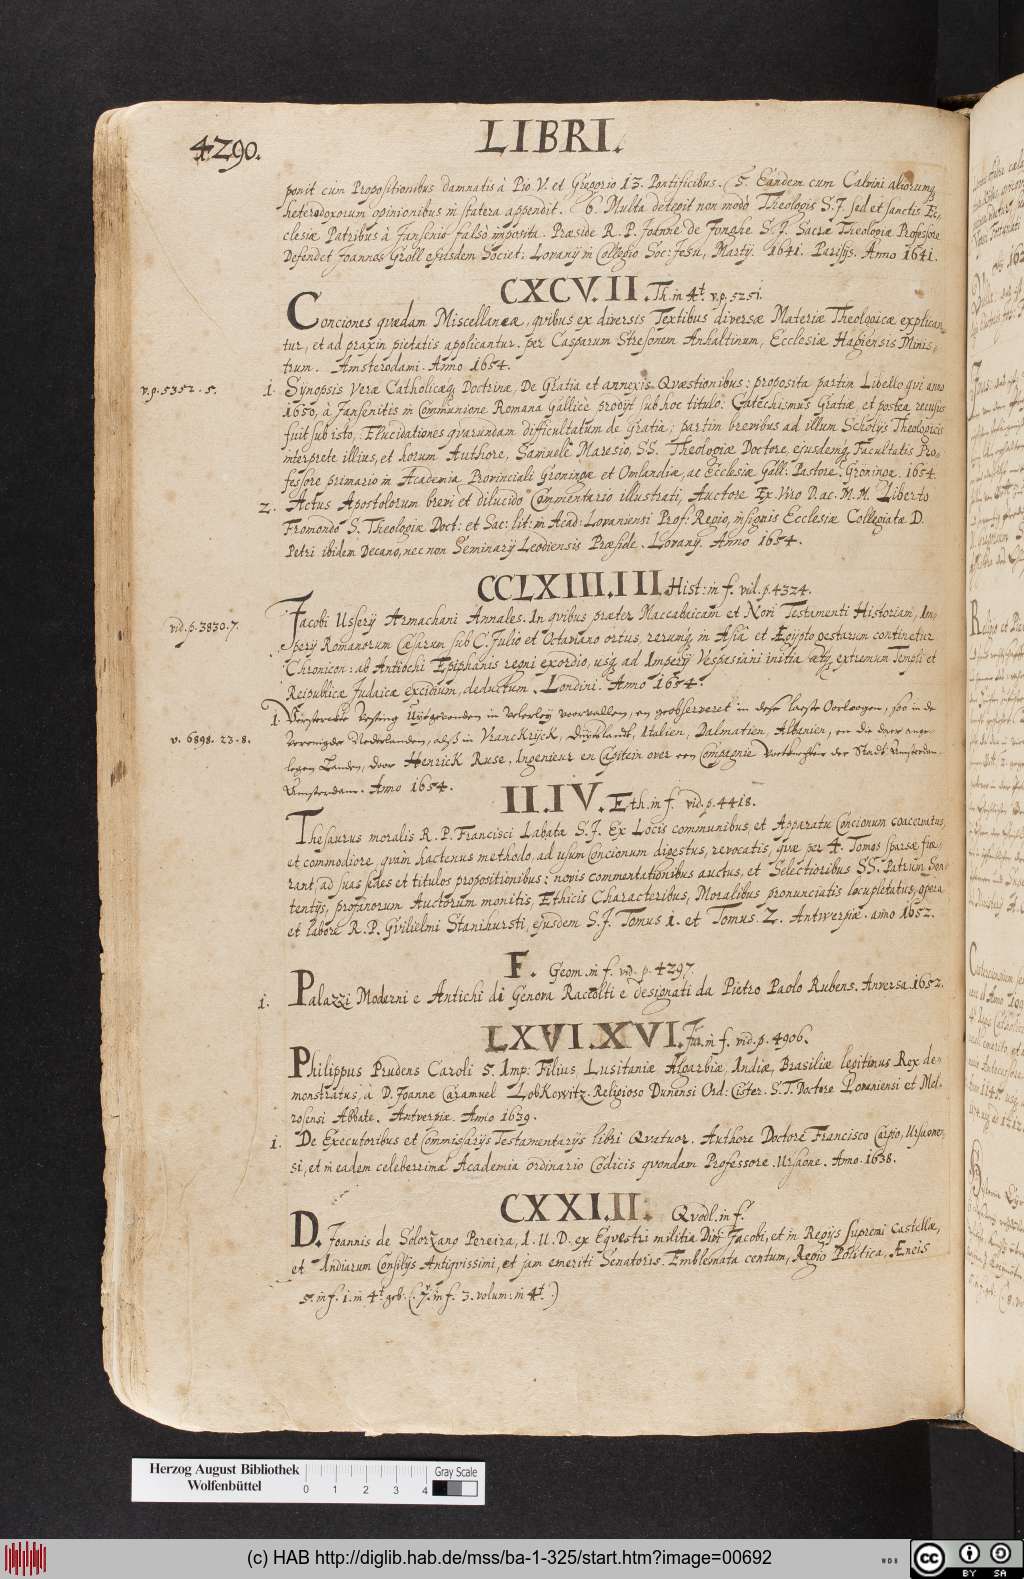 4290.
LIBRI.
ponit cum Propositionibus damnatis à Pio V. et Gregorio 13. Pontificibus. (5. Eandem cum Calvini aliorumq;
heterodoxorum opinionibus in statera appendit. (6. Multa detegit non modò Theologis S.J. sed et sanctis Ec-
clesiæ Patribus à Jansenio falsò imposita. Præside R. P. Joanne de Jonghe S. J. Sacræ Theologiæ Professore
Defendet Joannes Groll ejusdem Societ: Lovanij in Collegio Soc: Jesu, Martij. 1641. Parisijs. Anno 1641.
CXCV. II. Th. in 4t. v.p. 5251.
Conciones quædam Miscellaneæ, quibus ex diversis Textibus diversæ Materiæ Theologicæ explican-
tur, et ad praxin pietatis applicantur, per Casparum Stresonem Anhaltinum, Ecclesiæ Hagiensis Minis-
trum. Amsterodami. Anno 1654.
v.p. 5352. 5.
1. Synopsis Veræ Catholicæq; Doctrinæ, De Gratia et annexis Quæstionibus: proposita partim Libello qui anno
1650, à Jansenitis in Communione Romana Gallicè prodijt sub hoc titulo: Catechismus Gratiæ, et postea recusus
fuit sub isto, Elucidationes quarundam difficultatum de Gratia; partim brevibus ad illum Scholijs Theologicis
interprete illius, et horum Authore, Samuele Maresio, S.S. Theologiæ Doctore, ejusdemq; Facultatis Pro-
fessore primario in Academia Provinciali Groningæ et Omlandiæ, ac Ecclesiæ Gall: Pastore. Groningæ. 1654.
2. Actus Apostolorum brevi et dilucido Commentario illustrati, Auctore Ex. Viro D. ac. M. M. Liberto
Fromondo S. Theologiæ Doct: et Sac: lit: in Acad: Lovaniensi Prof: Regio, insignis Ecclesiæ Collegiatæ D.
Petri ibidem Decano, nec non Seminarij Leodiensis Præside. Lovanij. Anno 1654.
CCLXIII. III. Hist: in f. vid. p. 4324.
vid. p. 3830. 7.
Jacobi Usserij Armachani Annales. In quibus præter Maccabaicam et Novi Testamenti Historiam, Im-
perij Romanorum Cæsarum sub C. Julio et Octaviano ortus, rerumq; in Asia et Ægypto gestarum continetur
Chronicon: ab Antiochi Epiphanis regni exordio, usq; ad Imperij Vespasiani initia atq; extremum Templi et
Reipublicæ Judaicæ excidium, deductum. Londini. Anno 1654.
v. 6898. 23-8.
1. Versterckte Vesting Uytgevonden in velerley voorvallen, en geobserveret in dese laeste Oorloogen, soo in de
Vereenigde Nederlanden, alss in Vranckryck, Duytslandt, Italien, Dalmatien, Albanien, en die daer ange-
legen Landen, door Henrick Ruse. Ingenieur en Capitein over een Compagnie Voetknechten der Stadt Amsterdam.
Amsterdam. Anno 1654.
II. IV. Eth. in f. vid. p. 4418.
Thesaurus moralis R. P. Francisci Labata S. J. Ex Locis communibus, et Apparatu Concionum coacervatus,
et commodiore, quàm hactenus methodo, ad usum Concionum digestus, revocatis, quæ per 4. Tomos sparsæ fue-
rant, ad suas sedes et titulos propositionibus: novis commentationibus auctus, et Selectioribus SS. Patrum Sen-
tentijs, profanorum Auctorum monitis, Ethicis Characteribus, Moralibus pronunciatis locupletatus, opera
et labore R. P. Guilielmi Stanihursti, ejusdem S. J. Tomus 1. et Tomus 2. Antwerpiæ. anno 1652.
F. Geom. in f. vid. p. 4297.
1. Palazzi Moderni e Antichi di Genova Raccolti e designati da Pietro Paolo Rubens. Anversa. 1652.
LXVI. XVI. Jur. in f. vid. p. 4906.
Philippus Prudens Caroli 5. Imp: Filius, Lusitaniæ Algarbiæ, Indiæ, Brasiliæ legitimus Rex de-
monstratus, à D. Joanne Caramuel Lobkowitz. Religioso Dunensi Ord: Cister. S. T. Doctore Lovaniensi et Mel-
rosensi Abbate. Antverpiæ. Anno 1639.
1. De Executoribus et Commissarijs Testamentarijs libri Quatuor. Authore Doctore Francisco Carpio, Ursaonen-
si, et in eadem celeberrima Academia ordinario Codicis quondam Professore. Ursaone. Anno. 1638.
CXXI. II. Quodl. in f.
D. Joannis de Solorzano Pereira, I. U. D. ex Equestri militia Divi Jacobi, et in Regijs supremi Castellæ,
et Indiarum Consilijs Antiquissimi, et jam emeriti Senatoris. Emblemata centum, Regio Politica, Æneis
5. in f. 1. in 4t. geb: (. 7. in f. 3. volum: in 4t. )
Herzog August Bibliothek
Wolfenbüttel
0 1 2 3 4
Gray Scale
(c) HAB http://diglib.hab.de/mss/ba-1-325/start.htm?image=00692
WDB
cc
BY SA